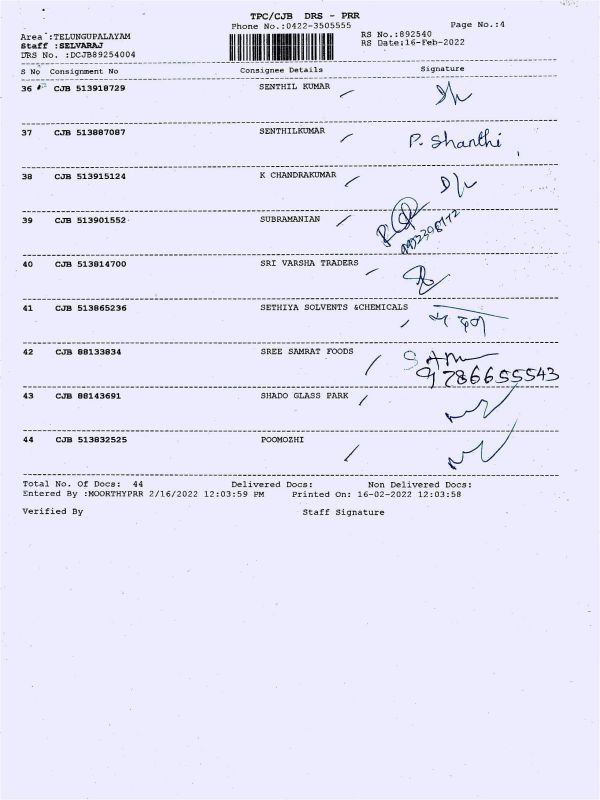 TPC/CJB DRS - PRR
Phone No.:0422-3505555
Page No.:4
Area :TELUNGUPALAYAM
RS No.:892540
Staff :SELVARAJ
RS Date:16-Feb-2022
DRS No. :DCJB89254004
S No Consignment No Consignee Details Signature
36 CJB 513918729 SENTHIL KUMAR
37 CJB 513887087 SENTHILKUMAR P. Shanthi
38 CJB 513915124 K CHANDRAKUMAR
39 CJB 513901552 SUBRAMANIAN
40 CJB 513814700 SRI VARSHA TRADERS
41 CJB 513865236 SETHIYA SOLVENTS &CHEMICALS
42 CJB 88133834 SREE SAMRAT FOODS
9786655543
43 CJB 88143691 SHADO GLASS PARK
44 CJB 513832525 POOMOZHI
Total No. Of Docs: 44 Delivered Docs: Non Delivered Docs:
Entered By :MOORTHYPRR 2/16/2022 12:03:59 PM Printed On: 16-02-2022 12:03:58
Verified By Staff Signature